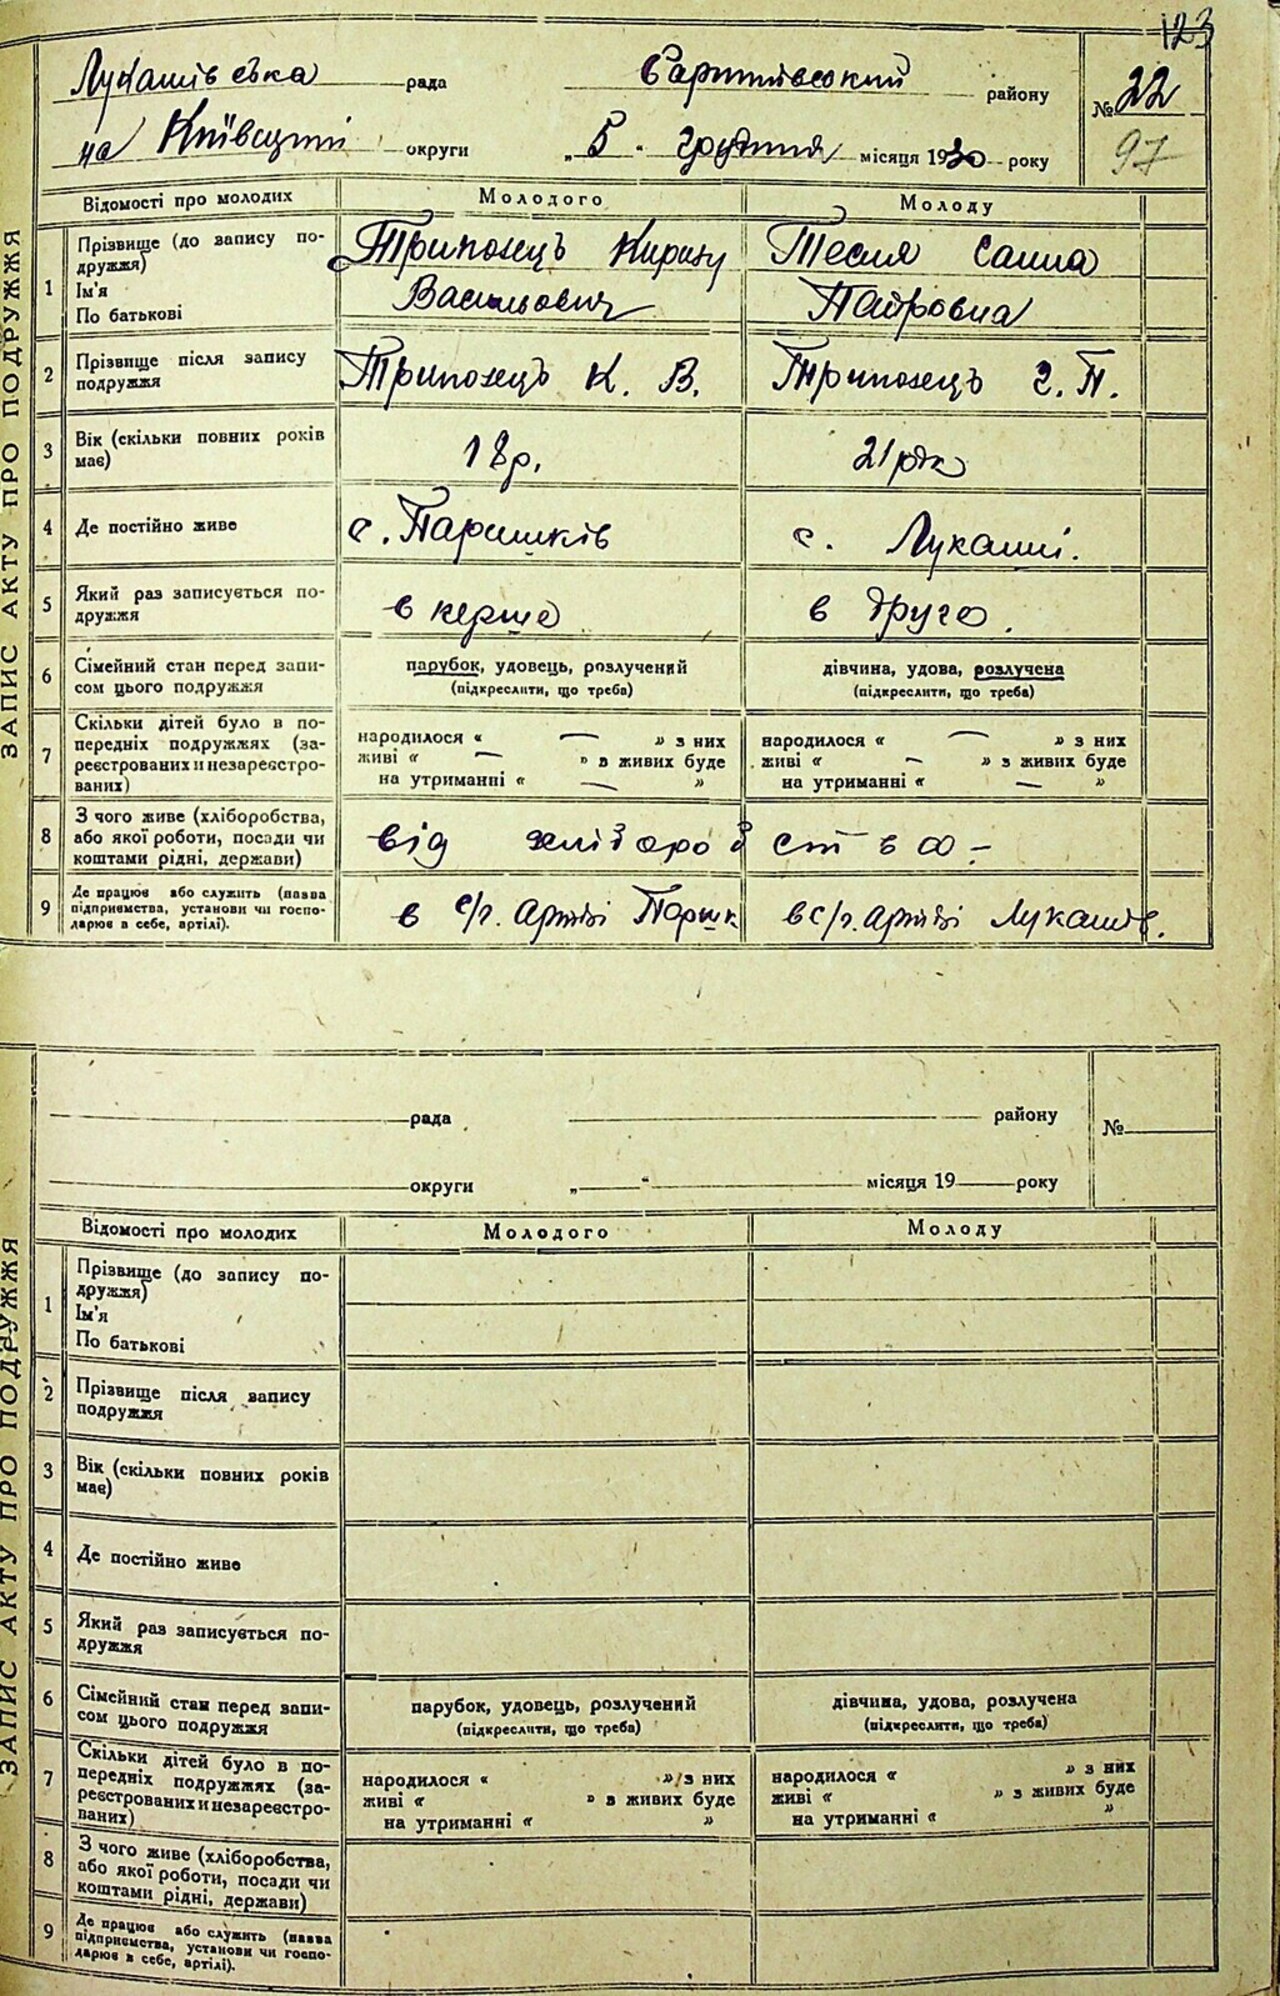 123
Лукашівська рада Баришівський району № 22
на Київщині округи „ 5 “ грудння місяця 1930 року 97
ЗАПИС АКТУ ПРО ПОДРУЖЖЯ
Відомості про молодих Молодого Молоду
1 Прізвище (до запису по-
дружжя)
Ім'я
По батькові
Трипозець Кирилу Тесля Ганна
Васильович Пайровна
2 Прізвище після запису
подружжя
Трипозець К. В. Трипозець Г. П.
3 Вік (скільки повних років
має)
18 р. 21 рік
4 Де постійно живе с. Паришків с. Лукаші.
5 Який раз записується по-
дружжя
в перше в друго.
6 Сімейний стан перед запи-
сом цього подружжя
парубок, удовець, розлучений дівчина, удова, розлучена
(підкреслити, що треба) (підкреслити, що треба)
7 Скільки дітей було в по-
передніх подружжях (за-
реєстрованих и незареєстро-
ваних)
народилося « — » з них народилося « — » з них
живі « — » в живих буде живі « — » з живих буде
на утриманні « — » на утриманні « — »
8 З чого живе (хліборобства,
або якої роботи, посади чи
коштами рідні, держави)
від хліборобства -
9 Де працює або служить (назва
підприємства, установи чи госпо-
дарює в себе, артілі).
в с/г. артілі Паришк в с/г. артілі Лукашів.
рада району №
округи „ “ місяця 19 року
ЗАПИС АКТУ ПРО ПОДРУЖЖЯ
Відомості про молодих Молодого Молоду
1 Прізвище (до запису по-
дружжя)
Ім'я
По батькові
2 Прізвище після запису
подружжя
3 Вік (скільки повних років
має)
4 Де постійно живе
5 Який раз записується по-
дружжя
6 Сімейний стан перед запи-
сом цього подружжя
парубок, удовець, розлучений дівчина, удова, розлучена
(підкреслити, що треба) (підкреслити, що треба)
7 Скільки дітей було в по-
передніх подружжях (за-
реєстрованих и незареєстро-
ваних)
народилося « » з них народилося « » з них
живі « » в живих буде живі « » з живих буде
на утриманні « » на утриманні « »
8 З чого живе (хліборобства,
або якої роботи, посади чи
коштами рідні, держави)
9 Де працює або служить (назва
підприємства, установи чи госпо-
дарює в себе, артілі).